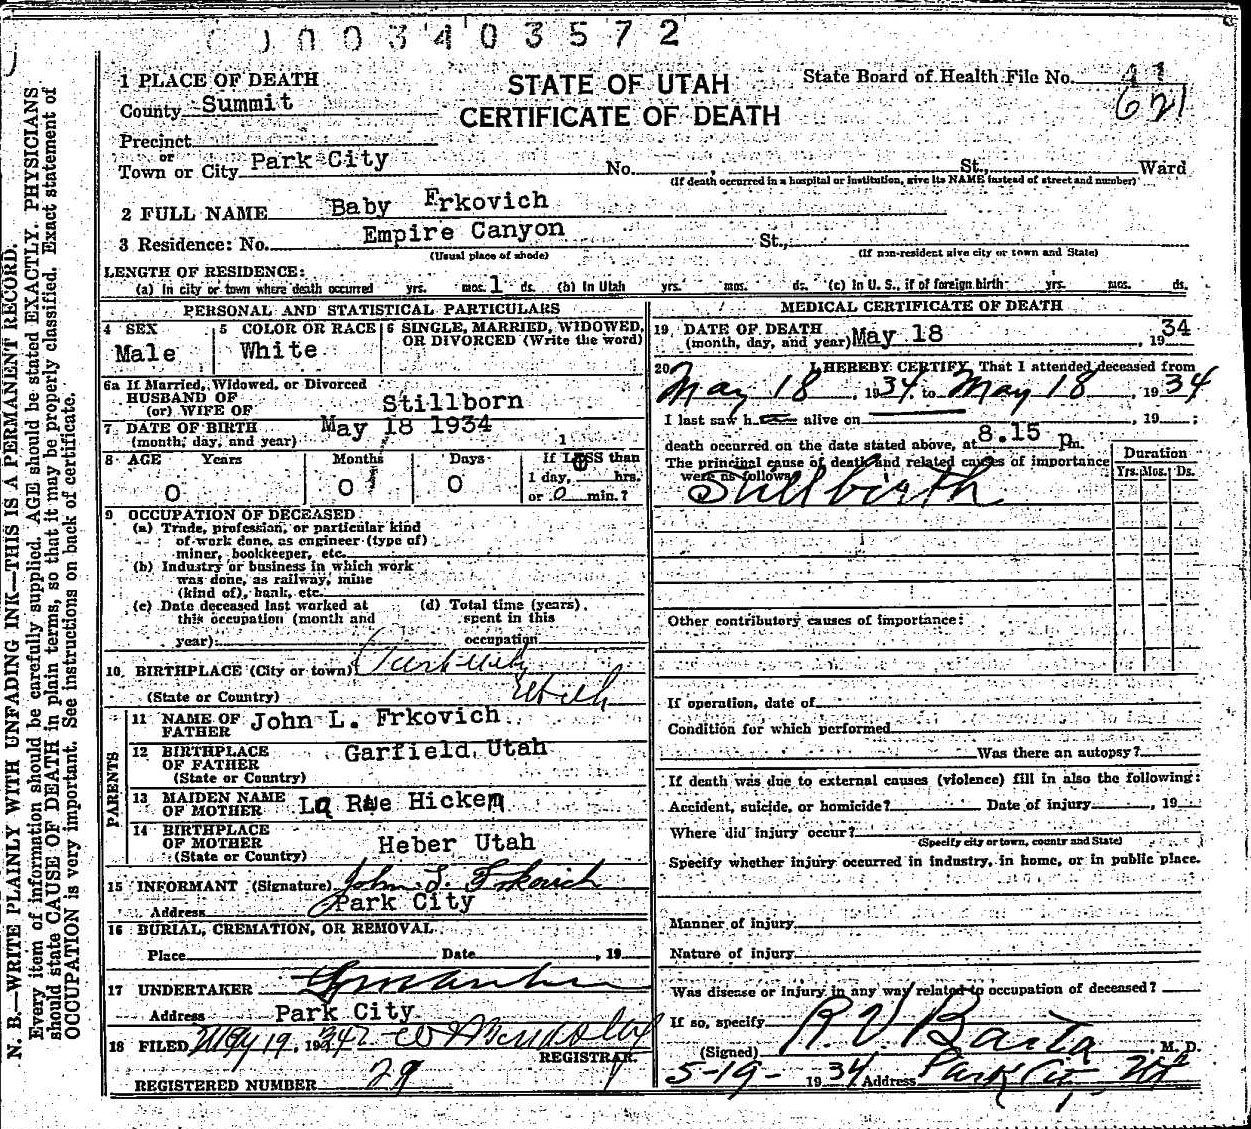 003403572
1 PLACE OF DEATH
STATE OF UTAH
CERTIFICATE OF DEATH
State Board of Health File No.
621
County Summit
Precinct
or
Town or City Park City No. St., Ward
(If death occurred in a hospital or institution, give its NAME instead of street and number)
2 FULL NAME Baby Frkovich
3 Residence: No. Empire Canyon St.,
(Usual place of abode) (If non-resident give city or town and State)
LENGTH OF RESIDENCE:
(a) In city or town where death occurred yrs. mos. 1 ds. (b) In Utah yrs. mos. ds. (c) In U. S., if of foreign birth yrs. mos. ds.
PERSONAL AND STATISTICAL PARTICULARS
4 SEX
Male
5 COLOR OR RACE
White
6 SINGLE, MARRIED, WIDOWED,
OR DIVORCED (Write the word)
6a If Married, Widowed, or Divorced
HUSBAND OF
(or) WIFE OF Stillborn
7 DATE OF BIRTH
(month, day, and year) May 18 1934
8 AGE Years Months Days If LESS than
1
1 day, hrs.
0 0 0 or 0 min.?
9 OCCUPATION OF DECEASED
(a) Trade, profession, or particular kind
of work done, as engineer (type of)
miner, bookkeeper, etc.
(b) Industry or business in which work
was done, as railway, mine
(kind of), bank, etc.
(c) Date deceased last worked at
this occupation (month and
year):
(d) Total time (years)
spent in this
occupation
10. BIRTHPLACE (City or town) Park City
(State or Country) Utah
PARENTS
11 NAME OF
FATHER John L. Frkovich
12 BIRTHPLACE
OF FATHER Garfield Utah
(State or Country)
13 MAIDEN NAME
OF MOTHER La Rue Hicken
14 BIRTHPLACE
OF MOTHER Heber Utah
(State or Country)
15 INFORMANT (Signature) John L. Frkovich
Address Park City
16 BURIAL, CREMATION, OR REMOVAL
Place Date , 19
17 UNDERTAKER
Address Park City
18 FILED May 19, 1934
REGISTRAR.
REGISTERED NUMBER 29
MEDICAL CERTIFICATE OF DEATH
19 DATE OF DEATH
(month, day, and year) May 18, 1934
20 I HEREBY CERTIFY, That I attended deceased from
May 18, 1934, to May 18, 1934
I last saw h alive on , 19 ;
death occurred on the date stated above, at 8.15 p m.
The principal cause of death and related causes of importance
were as follows:
Stillbirth
Duration
Yrs. Mos. Ds.
Other contributory causes of importance:
If operation, date of
Condition for which performed
Was there an autopsy?
If death was due to external causes (violence) fill in also the following:
Accident, suicide, or homicide? Date of injury , 19
Where did injury occur?
(Specify city or town, county and State)
Specify whether injury occurred in industry, in home, or in public place.
Manner of injury
Nature of injury
Was disease or injury in any way related to occupation of deceased?
If so, specify
(Signed) R. V. Barta M. D.
5-19-1934 Address Park City, Ut
N. B.—WRITE PLAINLY WITH UNFADING INK—THIS IS A PERMANENT RECORD.
Every item of information should be carefully supplied. AGE should be stated EXACTLY. PHYSICIANS
should state CAUSE OF DEATH in plain terms, so that it may be properly classified. Exact statement of
OCCUPATION is very important. See instructions on back of certificate.